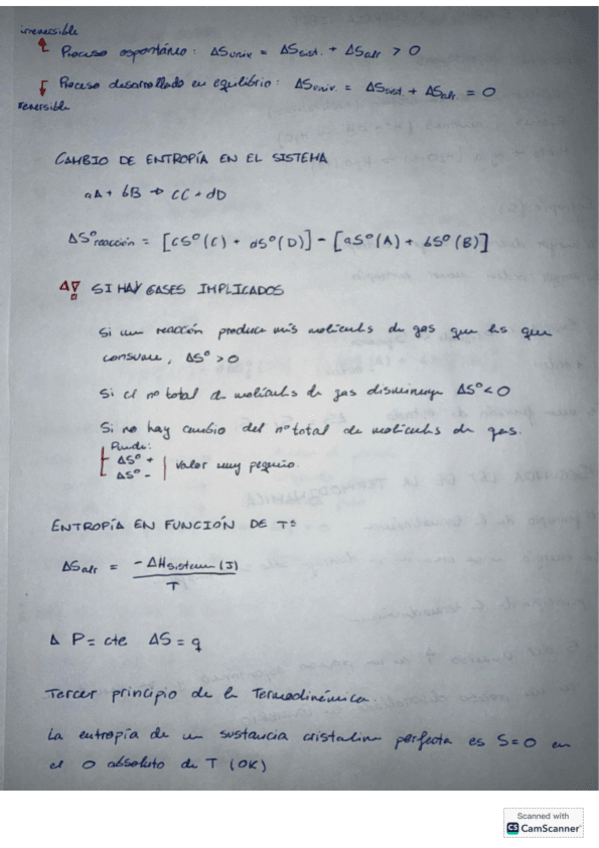 irreversible
Proceso espontáneo: ΔSuniv = ΔSsist. + ΔSalr > 0
Proceso desarrollado en equilibrio: ΔSuniv. = ΔSsist + ΔSalr. = 0
reversible
CAMBIO DE ENTROPÍA EN EL SISTEMA
aA + bB → cC + dD
ΔSº reacción = [cSº(C) + dSº(D)] - [aSº(A) + bSº(B)]
SI HAY GASES IMPLICADOS
Si una reacción produce más moléculas de gas que las que
consume, ΔSº > 0
Si el nº total de moléculas de gas disminuye ΔSº < 0
Si no hay cambio del nº total de moléculas de gas.
Puede:
ΔSº + 
ΔSº - | Valor muy pequeño.
ENTROPÍA EN FUNCIÓN DE Tª
ΔSalr = -ΔHsistema (J)
T
Δ P = cte ΔS = q
Tercer principio de la Termodinámica.
La entropía de un sustancia cristalina perfecta es S=0 en
el 0 absoluto de T (0K)
Scanned with
CS CamScanner